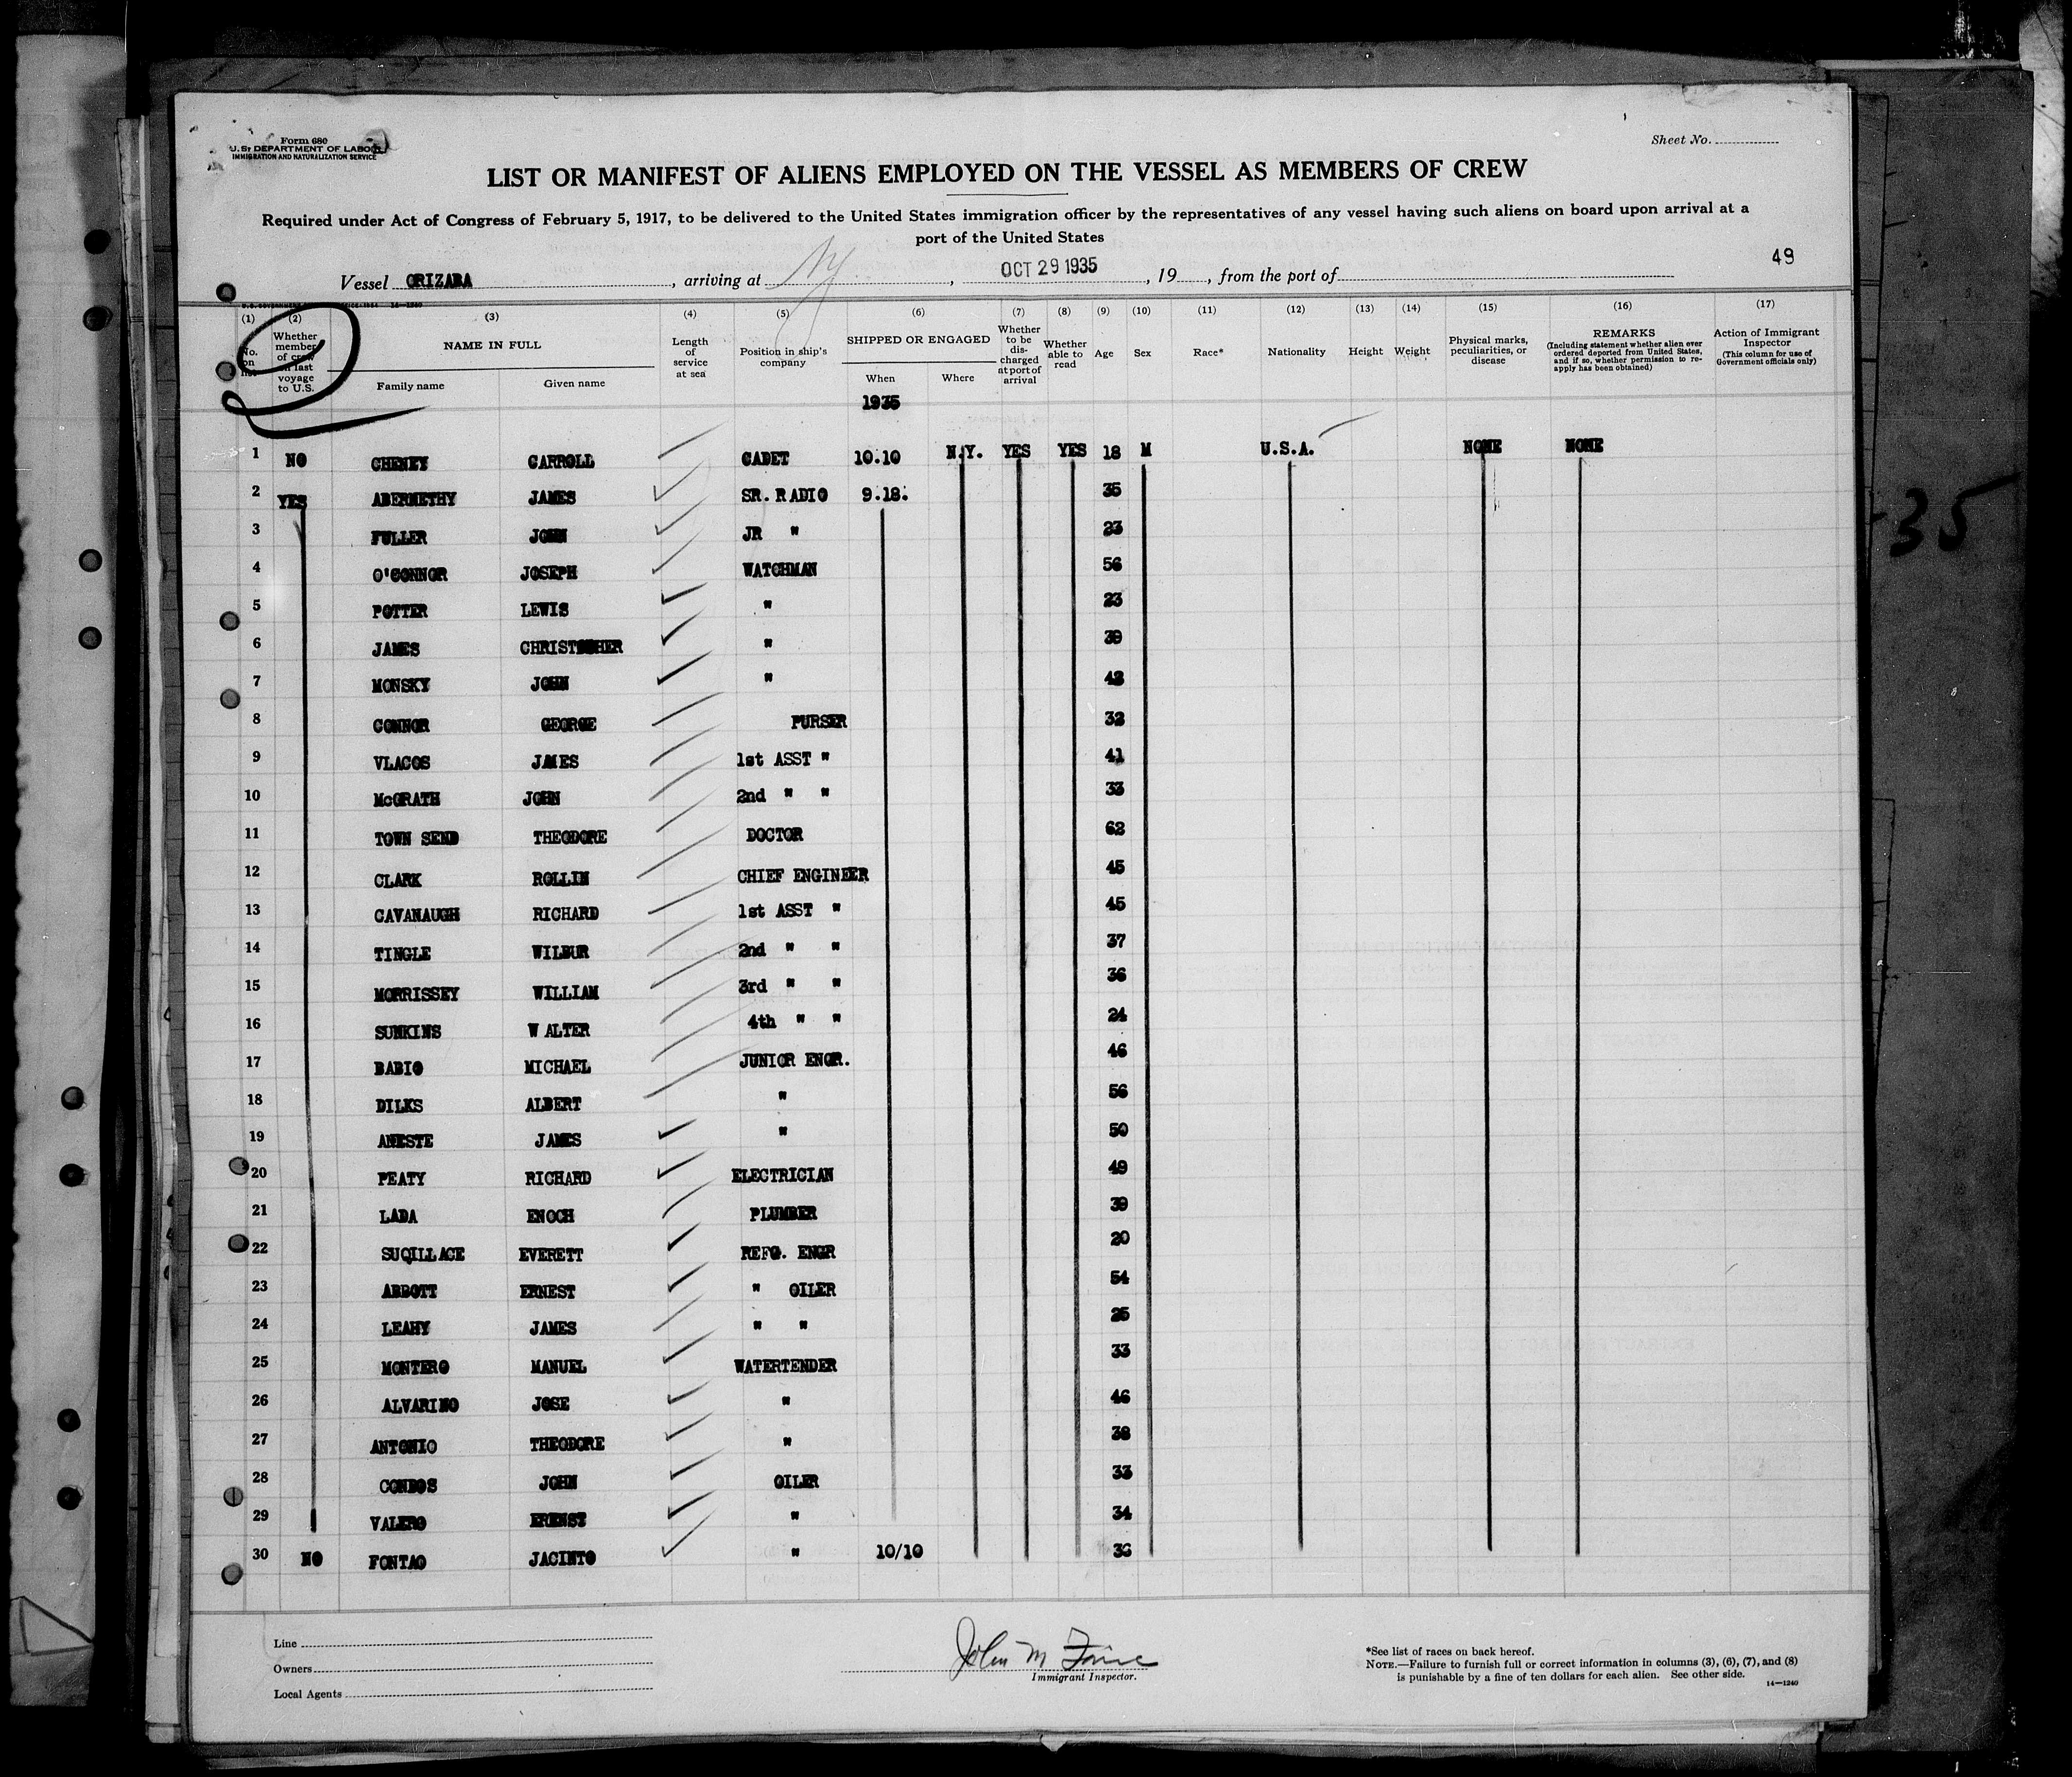 Form 680
U.S. DEPARTMENT OF LABOR
IMMIGRATION AND NATURALIZATION SERVICE
Sheet No.
LIST OR MANIFEST OF ALIENS EMPLOYED ON THE VESSEL AS MEMBERS OF CREW
Required under Act of Congress of February 5, 1917, to be delivered to the United States immigration officer by the representatives of any vessel having such aliens on board upon arrival at a
port of the United States
49
Vessel ORIZABA, arriving at NY, OCT 29 1935, 19, from the port of
(1) (2) (3) (4) (5) (6) (7) (8) (9) (10) (11) (12) (13) (14) (15) (16) (17)
No. on list
Whether member of crew on last voyage to U.S.
NAME IN FULL
Family name
Given name
Length of service at sea
Position in ship's company
SHIPPED OR ENGAGED
When
Where
Whether to be discharged at port of arrival
Whether able to read
Age
Sex
Race*
Nationality
Height
Weight
Physical marks, peculiarities, or disease
REMARKS
(Including statement whether alien ever ordered deported from United States, and if so, whether permission to re-apply has been obtained)
Action of Immigrant Inspector
(This column for use of Government officials only)
1935
1 NO CHENEY CARROLL CADET 10.10 N.Y. YES YES 18 M U.S.A. NONE NONE
2 YES ABERMETHY JAMES SR. RADIO 9.18. 35
3 FULLER JOHN JR " 23
4 O'CONNOR JOSEPH WATCHMAN 56
5 POTTER LEWIS " 23
6 JAMES CHRISTOPHER " 39
7 MONSKY JOHN " 43
8 CONNOR GEORGE PURSER 32
9 VLACOS JAMES 1st ASST " 41
10 McGRATH JOHN 2nd " " 33
11 TOWN SEND THEODORE DOCTOR 62
12 CLARK ROLLIN CHIEF ENGINEER 45
13 CAVANAUGH RICHARD 1st ASST " 45
14 TINGLE WILBUR 2nd " " 37
15 MORRISSEY WILLIAM 3rd " " 36
16 SUNKINS W ALTER 4th " " 24
17 BABIO MICHAEL JUNIOR ENGR. 46
18 DILKS ALBERT " 56
19 ANESTE JAMES " 50
20 PEATY RICHARD ELECTRICIAN 49
21 LADA ENOCH PLUMBER 39
22 SUQILLACE EVERETT REFG. ENGR 20
23 ABBOTT ERNEST " OILER 54
24 LEAHY JAMES " " 25
25 MONTERO MANUEL WATERTENDER 33
26 ALVARINO JOSE " 46
27 ANTONIO THEODORE " 38
28 CONDOS JOHN OILER 33
29 VALERO ERENST " 34
30 NO FONTAO JACINTO " 10/10 36
Line
Owners
Local Agents
Immigrant Inspector.
*See list of races on back hereof.
NOTE.—Failure to furnish full or correct information in columns (3), (6), (7), and (8)
is punishable by a fine of ten dollars for each alien. See other side.
14—1240
35